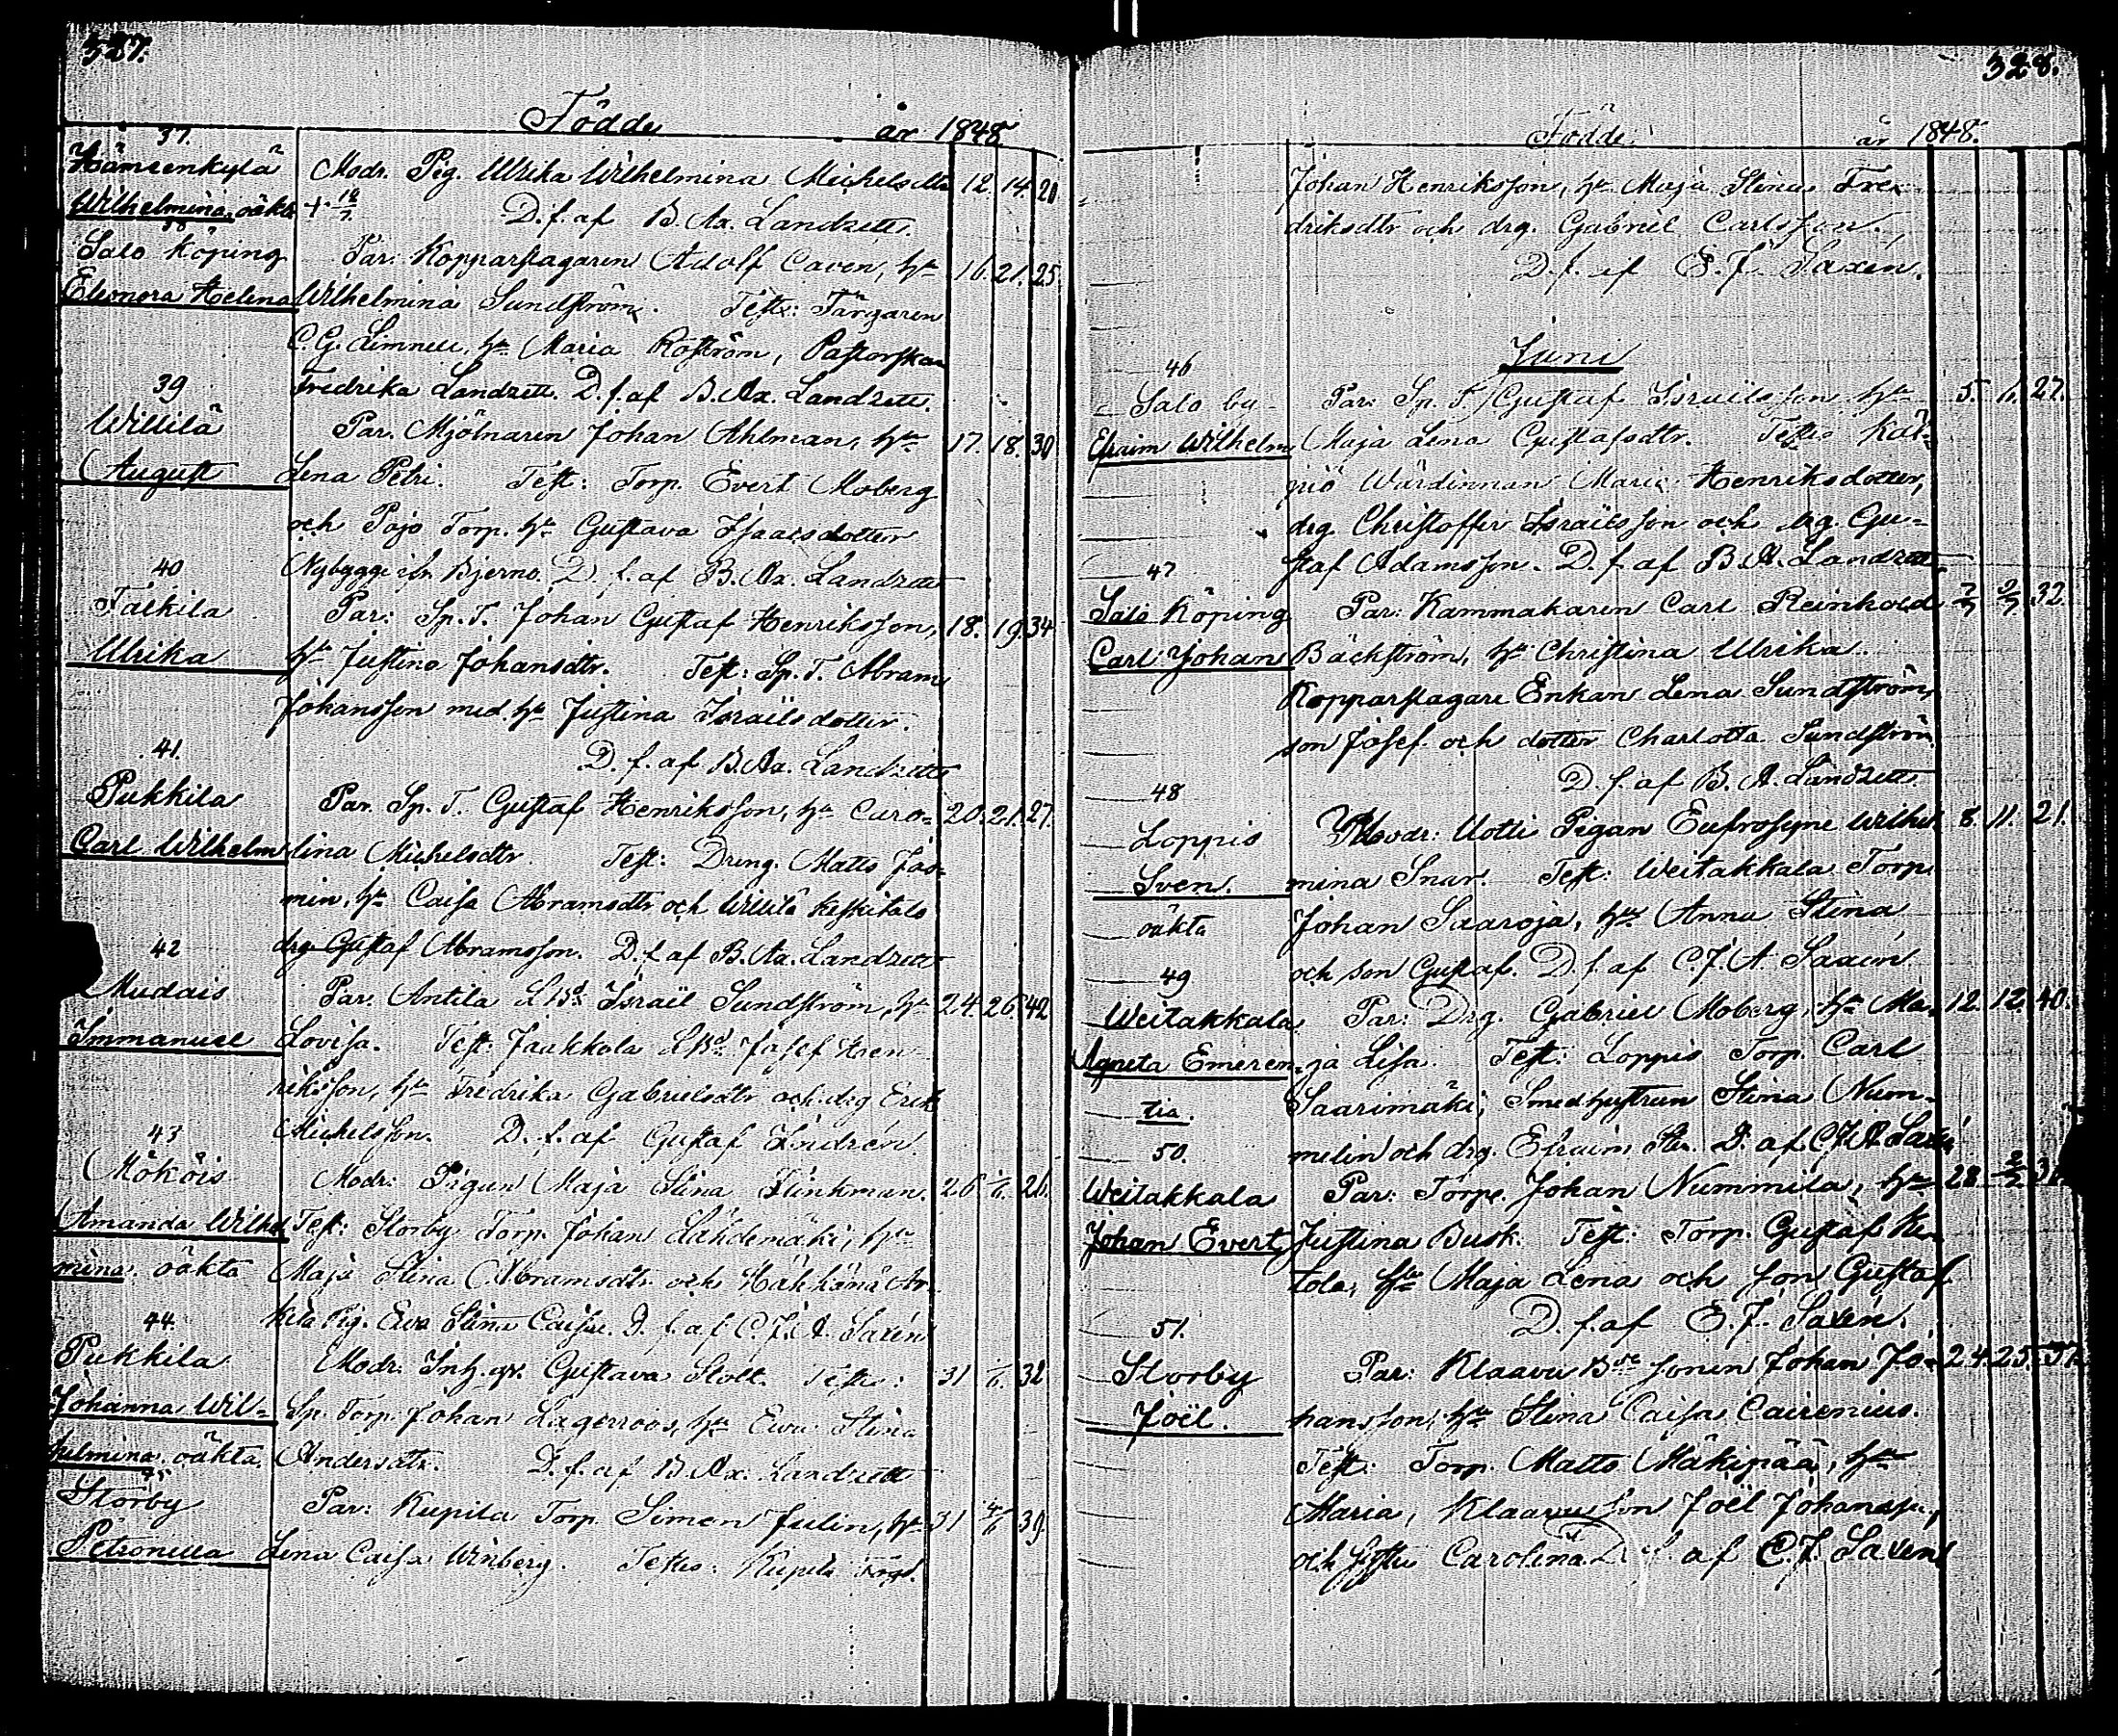 327.
Födde år 1848
37.
Hämeenkylä Modr. Pig. Ulrika Wilhelmina Michelsdtr 12. 14. 20
Wilhelmina. oäkta + 12/7 D. f. af B. Ax. Landzett.
Salo Köping Par: Kopparslagaren Adolf Caven, hu 16. 21. 25
Eleonora Helena Wilhelmina Sundström. Test: Färgaren
C. G. Limnell, hu Maria Roström, Pastorskan
39 Fredrika Landzett. D. f. af B. Ax. Landzett.
Willilä Par. Mjölnaren Johan Ahlman, hu 17. 18. 30
August Lena Petri. Test: Torp. Evert Moberg
och Pojo Torp. hu Gustava Isaacsdotter
40 Nybygge ifr. Bjerno. D. f. af B. Ax. Landzett
Par: Sp. T. Johan Gustaf Henriksson, 18. 19. 34
Ulrika hu Justina Johansdtr. Test: Sp. T. Abram
Johansson med hu Justina Israilsdotter.
41. D. f. af B. Ax. Landzett
Pukkila Par. Sp. T. Gustaf Henriksson, hu Caro- 20. 21. 27.
Carl Wilhelm lina Michelsdtr. Test: Dreng. Matts Jas-
min, hu Caisa Abramsdtr och Willilä Keskitalo
42 drg. Gustaf Abramsson. D. f. af B. Ax. Landzett
Mudais Par. Antila Israil Sundström, hu 24. 26. 42
Immanuel Lovisa. Test: Jaakkola Josef Hen-
riksson, hu Fredrika Gabrielsdtr och drg Erik
43 Michelsson. D. f. af Gustaf Lindrén.
Mököis Modr: Pigan Maja Stina Flinkman. 26 26.
Amanda Wilhel Test: Storby Torp. Johan Lähdemäki, hu
mina. oäkta Maja Stina Abramsdtr och
44. Pig. Eva Stina Caisa. D. f. af C. J. A. Saxén
Pukkila Modr. Inh. qv. Gustava Stolt. Testes: 31 32
Johanna Wil- Sp. Torp. Johan Lagerroos, hu Eva Stina
helmina. oäkta. Andersdtr. D. f. af B. Ax. Landzett
45
Storby Par: Kupila Torp. Simon Julin, hu 31 4/6 39.
Petronella Lena Caisa Winberg. Testes: Kupila
328.
Födde år 1848.
Johan Henriksson, hu Maja Stina Fre-
driksdtr och drg. Gabriel Carlsson.
D. f. af C. J. Saxén.
Juni
46
Salo by Par: Sp. T. Gustaf Israilsson hu 5. 27.
Efraim Wilhelm Maja Lena Gustafsdtr. Testes Kär-
Wärdinnan Maria Henriksdotter,
drg. Christoffer Israilsson och drg. Gu-
47 staf Adamsson. D. f. af B. A. Landzett
Salo Köping Par: Kammakaren Carl Reinhold 32.
Carl Johan Bäckström, hu Christina Ulrika.
Kopparslagare Enkan Lena Sundström,
son Josef och dotter Charlotta Sundström
48 D. f. af B. A. Landzett
Loppis Modr: Uotti Pigan Eufrosyne Wilhel- 8. 11. 21.
Sven. mina Snar. Test: Weitakkala Torp.
oäkta Johan Saaroja, hu Anna Stina
49 och son Gustaf. D. f. af C. J. A. Saxén
Weitakkala Par: Drg. Gabriel Moberg, hu Ma- 12. 12. 40.
Agneta Emeren- ja Lisa. Test: Loppis Torp. Carl
tia. Saarimäki, Smedhustrun Stina Num-
50. melin och drg. Efraim D. af C. J. A. Saxén
Weitakkala Par: Torp. Johan Nummila, hu 28
Johan Evert Justina Busk. Test: Torp. Gustaf Ke-
tola, hu Maja Lena och son Gustaf.
51. D. f. af C. J. Saxén.
Storby Par: Klaavu sonen Johan Jo- 24. 25. 37.
Joël. hansson, hu Stina Caisa Cairenius.
Test: Torp. Matts Mäkipää, hu
Maria, Klaavu son Joël Johansson,
och syster Carolina. D. f. af C. J. Saxén